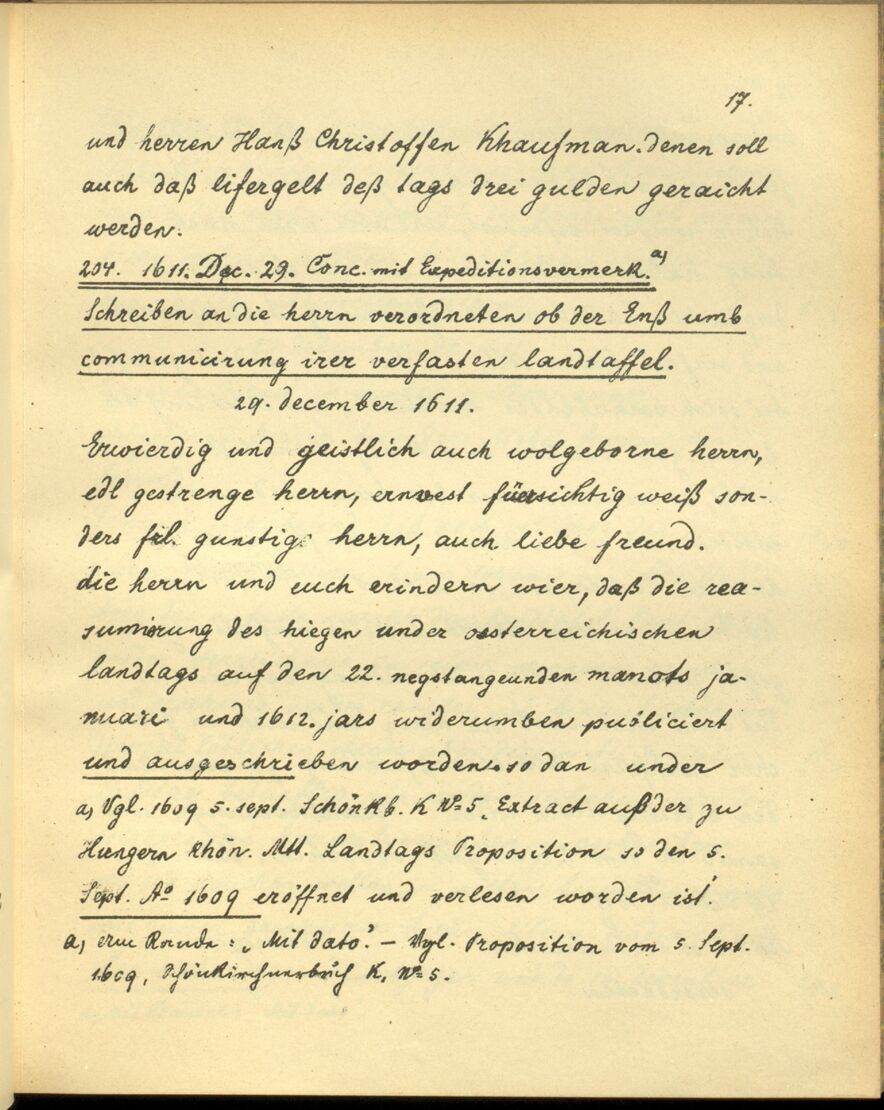 17.
und herren Hanß Christoffen Khaufman. denen soll
auch daß lifergelt deß tags drei gulden geraicht
werden.
204. 1611. Dec. 29. Conc. mit Expeditionsvermerk. a)
Schreiben an die herrn verordneten ob der Enß umb
communicirung irer verfasten landtaffel.
29. december 1611.
Erwierdig und geistlich auch wolgeborne herrn,
edl gestrenge herrn, ernvest füersichtig weiß son-
ders frl. gunstig. herrn, auch liebe freund.
die herrn und euch erindern wier, daß die rea-
sumirung des hiegen under oesterreichischen
landtags auf den 22. negstangeunden manots ja-
nuari und 1612. jars widerumben publiciert
und ausgeschrieben worden. so dan under
a) Vgl. 1609 5. sept. Schönkb. K No 5. Extract auß der zu
Hungern Khön. Mtt. Landtags Proposition so den 5.
Sept. Ao 1609 eröffnet und verlesen worden ist.
a) am Rande: „Mit dato." – Vgl. Proposition vom 5. Sept.
1609, Schönkirchnerbuch K, No 5.